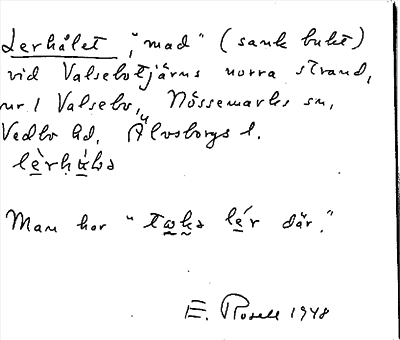 Lerhålet, "mad" (sank bukt)
vid Valsebotjärns norra strand,
nr 1 Valsebo, Nössemarks sn,
Vedbo hd, Älvsborgs l.
Man har "taka lér där."
E. Rosell 1948